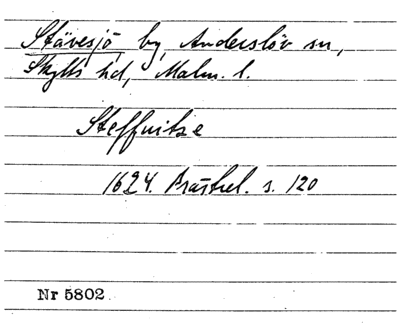 Stävesjö by, Anderslöv sn,
Skytts hd, Malm. l.
Steffuitze
1624. Prästrel. s. 120
Nr 5802